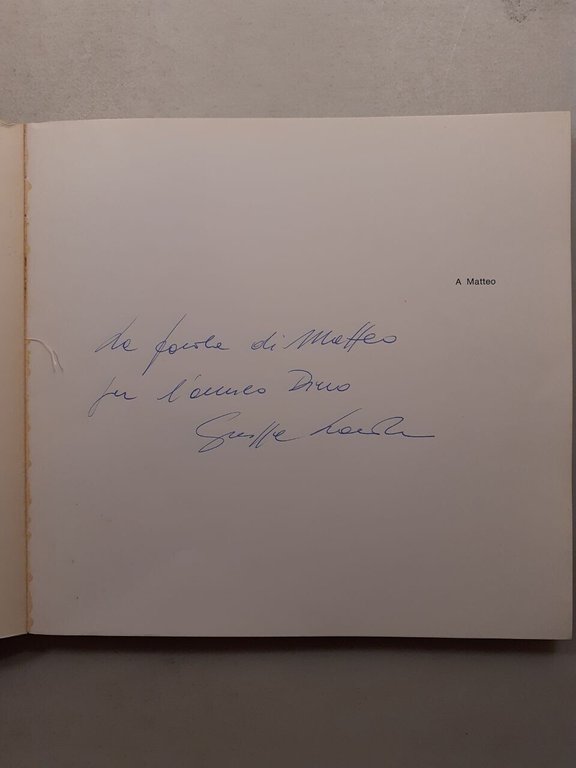 A Matteo
La favola di Matteo
per l'amico Dino
Giuseppe